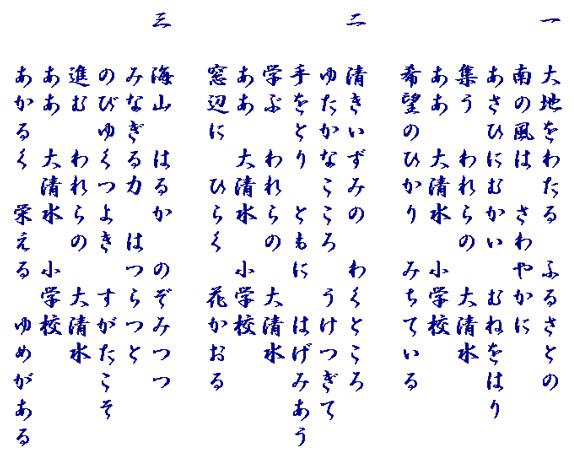 一
大地をわたる　ふるさとの
南の風は　さわやかに
あさひにむかい　むねをはり
集う　われらの　大清水
ああ　大清水　小学校
希望のひかり　みちている
二
清きいずみの　わくところ
ゆたかなこころ　うけつぎて
手をとり　ともに　はげみあう
学ぶ　われらの　大清水
ああ　大清水　小学校
窓辺に　ひらく　花かおる
三
海山　はるか　のぞみつつ
みなぎる力　はつらつと
のびゆくつよき　すがたこそ
進む　われらの　大清水
ああ　大清水　小学校
あかるく　栄える　ゆめがある